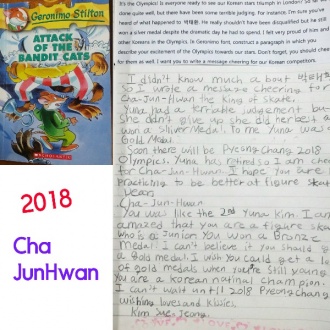 Geronimo Stilton
ATTACK
OF THE
BANDIT CATS
SCHOLASTIC
2018
Cha
JunHwan
It's the Olympics! Is everyone ready to see our Korean stars triumph in London? So
done quite well, but there have been some terrible judging. For instance, I'm sure you've
heard of what happened to 박태환. He really shouldn't have been disqualified but he still
won a silver medal despite the dramatic day he had to spend. I felt very proud of him and
other Koreans in the Olympics. In Geronimo font, construct a paragraph in which you
describe your excitement of the Olympics towards our stars. Don't forget, you should chee
for them as well. I want you to write a message cheering for our Korean competitors.
I didn't know much about 박태환
so I wrote a message cheering for
Cha-Jun-Hwan the King of skate.
Yuna had a terrable judgement but
she didn't give up she did her best a
won a Sliver Medal. To me Yuna was
Gold Medal.
Soon there will be PyeongChang 2018
Olympics. Yuna has retired so I am chee
for Cha-Jun-Hwan. I hope you are
Practicing to be better at figure skat
Dear.
Cha-Jun-Hwan
You was like the 2nd Yuna Kim. I am
amazed that you are a figure ska
who is a Junior. You won a Bronze
medal. I can't believe it you should g
a Gold medal. I wish you could get a lo
of gold medals when you're still young
You are a Korean natinal champion.
I can't wait until 2018 PyeongChang
wishing loves and kisses
Kim Jeong